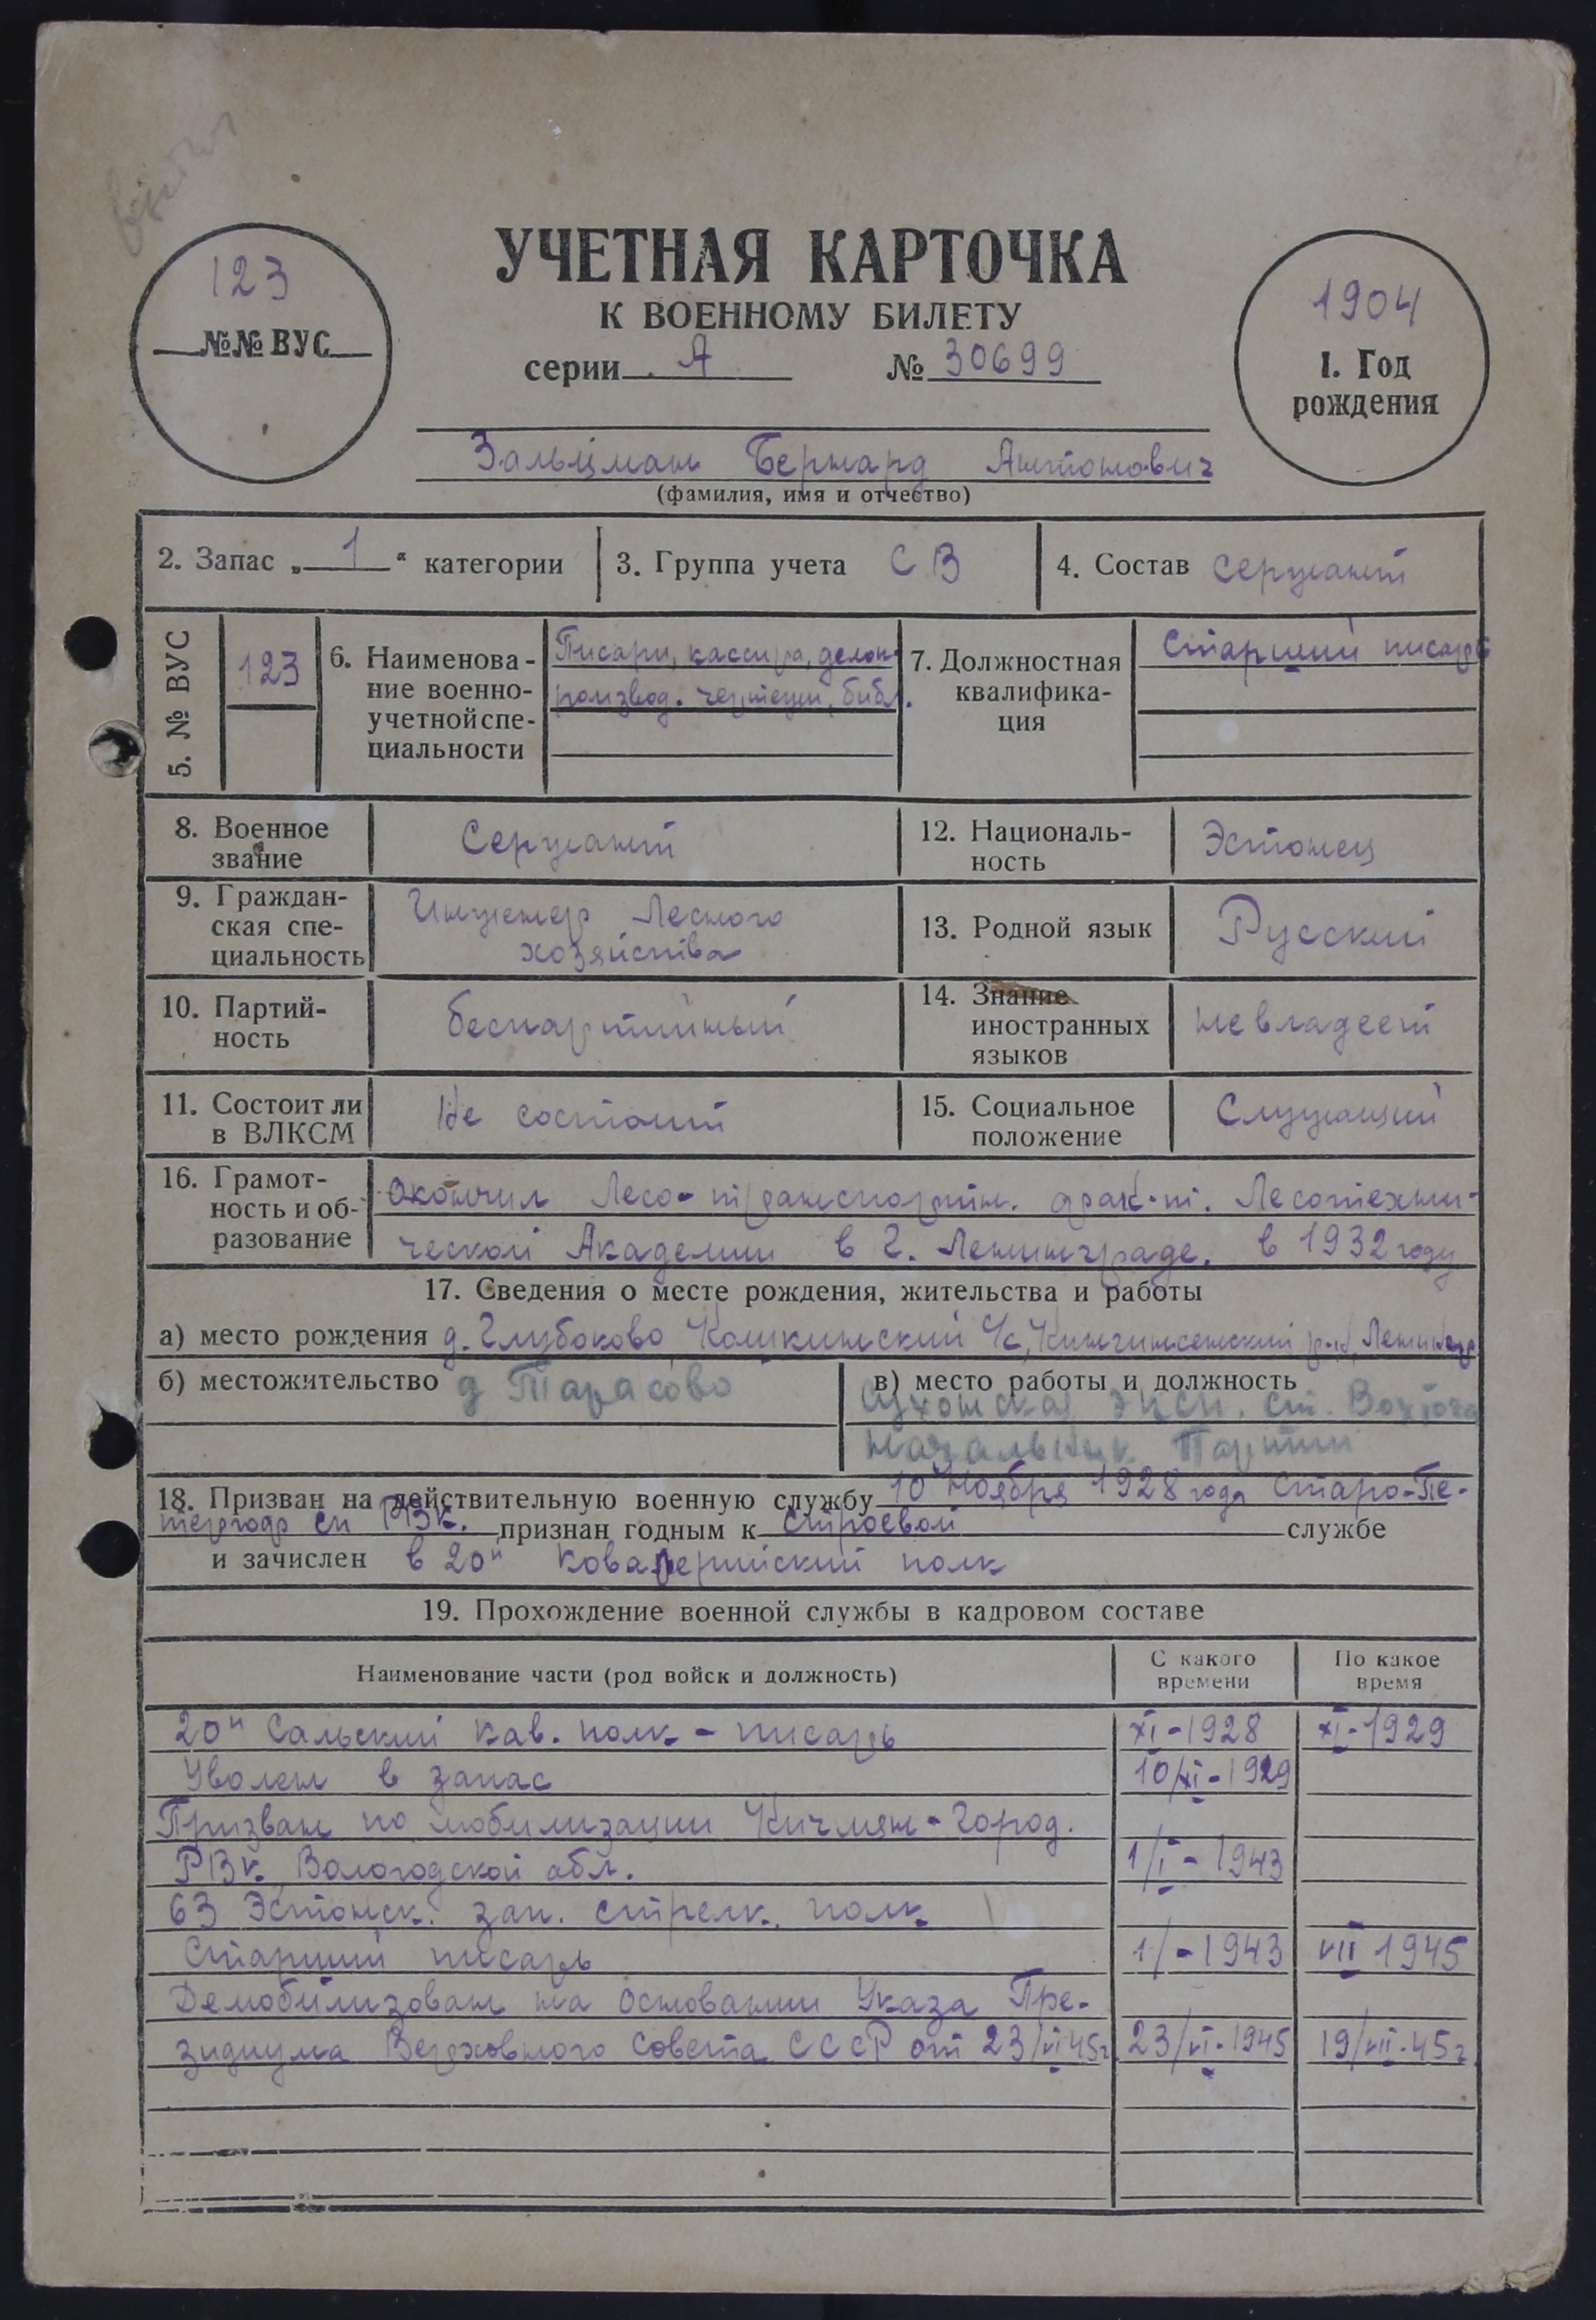 123
№№ ВУС
УЧЕТНАЯ КАРТОЧКА
К ВОЕННОМУ БИЛЕТУ
серии А № 30699
1904
1. Год
рождения
Зальцман Бернард Антонович
(фамилия, имя и отчество)
2. Запас „ 1 “ категории
3. Группа учета СВ
4. Состав сержант
5. № ВУС
123
6. Наименова-
ние военно-
учетной спе-
циальности
Писари, кассира, делоп-
роизвод. чертежн, библ.
7. Должностная
квалифика-
ция
Старший писарь
8. Военное
звание
Сержант
12. Националь-
ность
Эстонец
9. Граждан-
ская спе-
циальность
Инженер Лесного
хозяйства
13. Родной язык
Русский
10. Партий-
ность
беспартийный
14. Знание
иностранных
языков
не владеет
11. Состоит ли
в ВЛКСМ
Не состоит
15. Социальное
положение
Служащий
16. Грамот-
ность и об-
разование
окончил Лесо-транспортн. фак-т. Лесотехни-
ческой Академии в г. Ленинграде. в 1932 году
17. Сведения о месте рождения, жительства и работы
а) место рождения д. Глубоково Кошкинский с/с, Кингиссепский р-н, Ленингр
б) местожительство д Тарасово
в) место работы и должность
Сухонская эксп. ст. Вохтога
Начальник Партии
18. Призван на действительную военную службу 10 Ноября 1928 года Старо-Пе-
тергоф ск РВК. признан годным к строевой службе
и зачислен в 20й Ковалерийский полк
19. Прохождение военной службы в кадровом составе
Наименование части (род войск и должность)
С какого
времени
По какое
время
20й Сальский кав. полк - писарь XI-1928 XI-1929
Уволен в запас 10/XI-1929
Призван по мобилизации Кичмен-Город.
РВК, Вологодской обл. 1/I-1943
63 Эстонск. зап. стрелк. полк
Старший писарь 1/-1943 VII 1945
Демобилизован на основании Указа Пре-
зидиума Верховного Совета СССР от 23/VI 45г. 23/VI-1945 19/VII-45г.